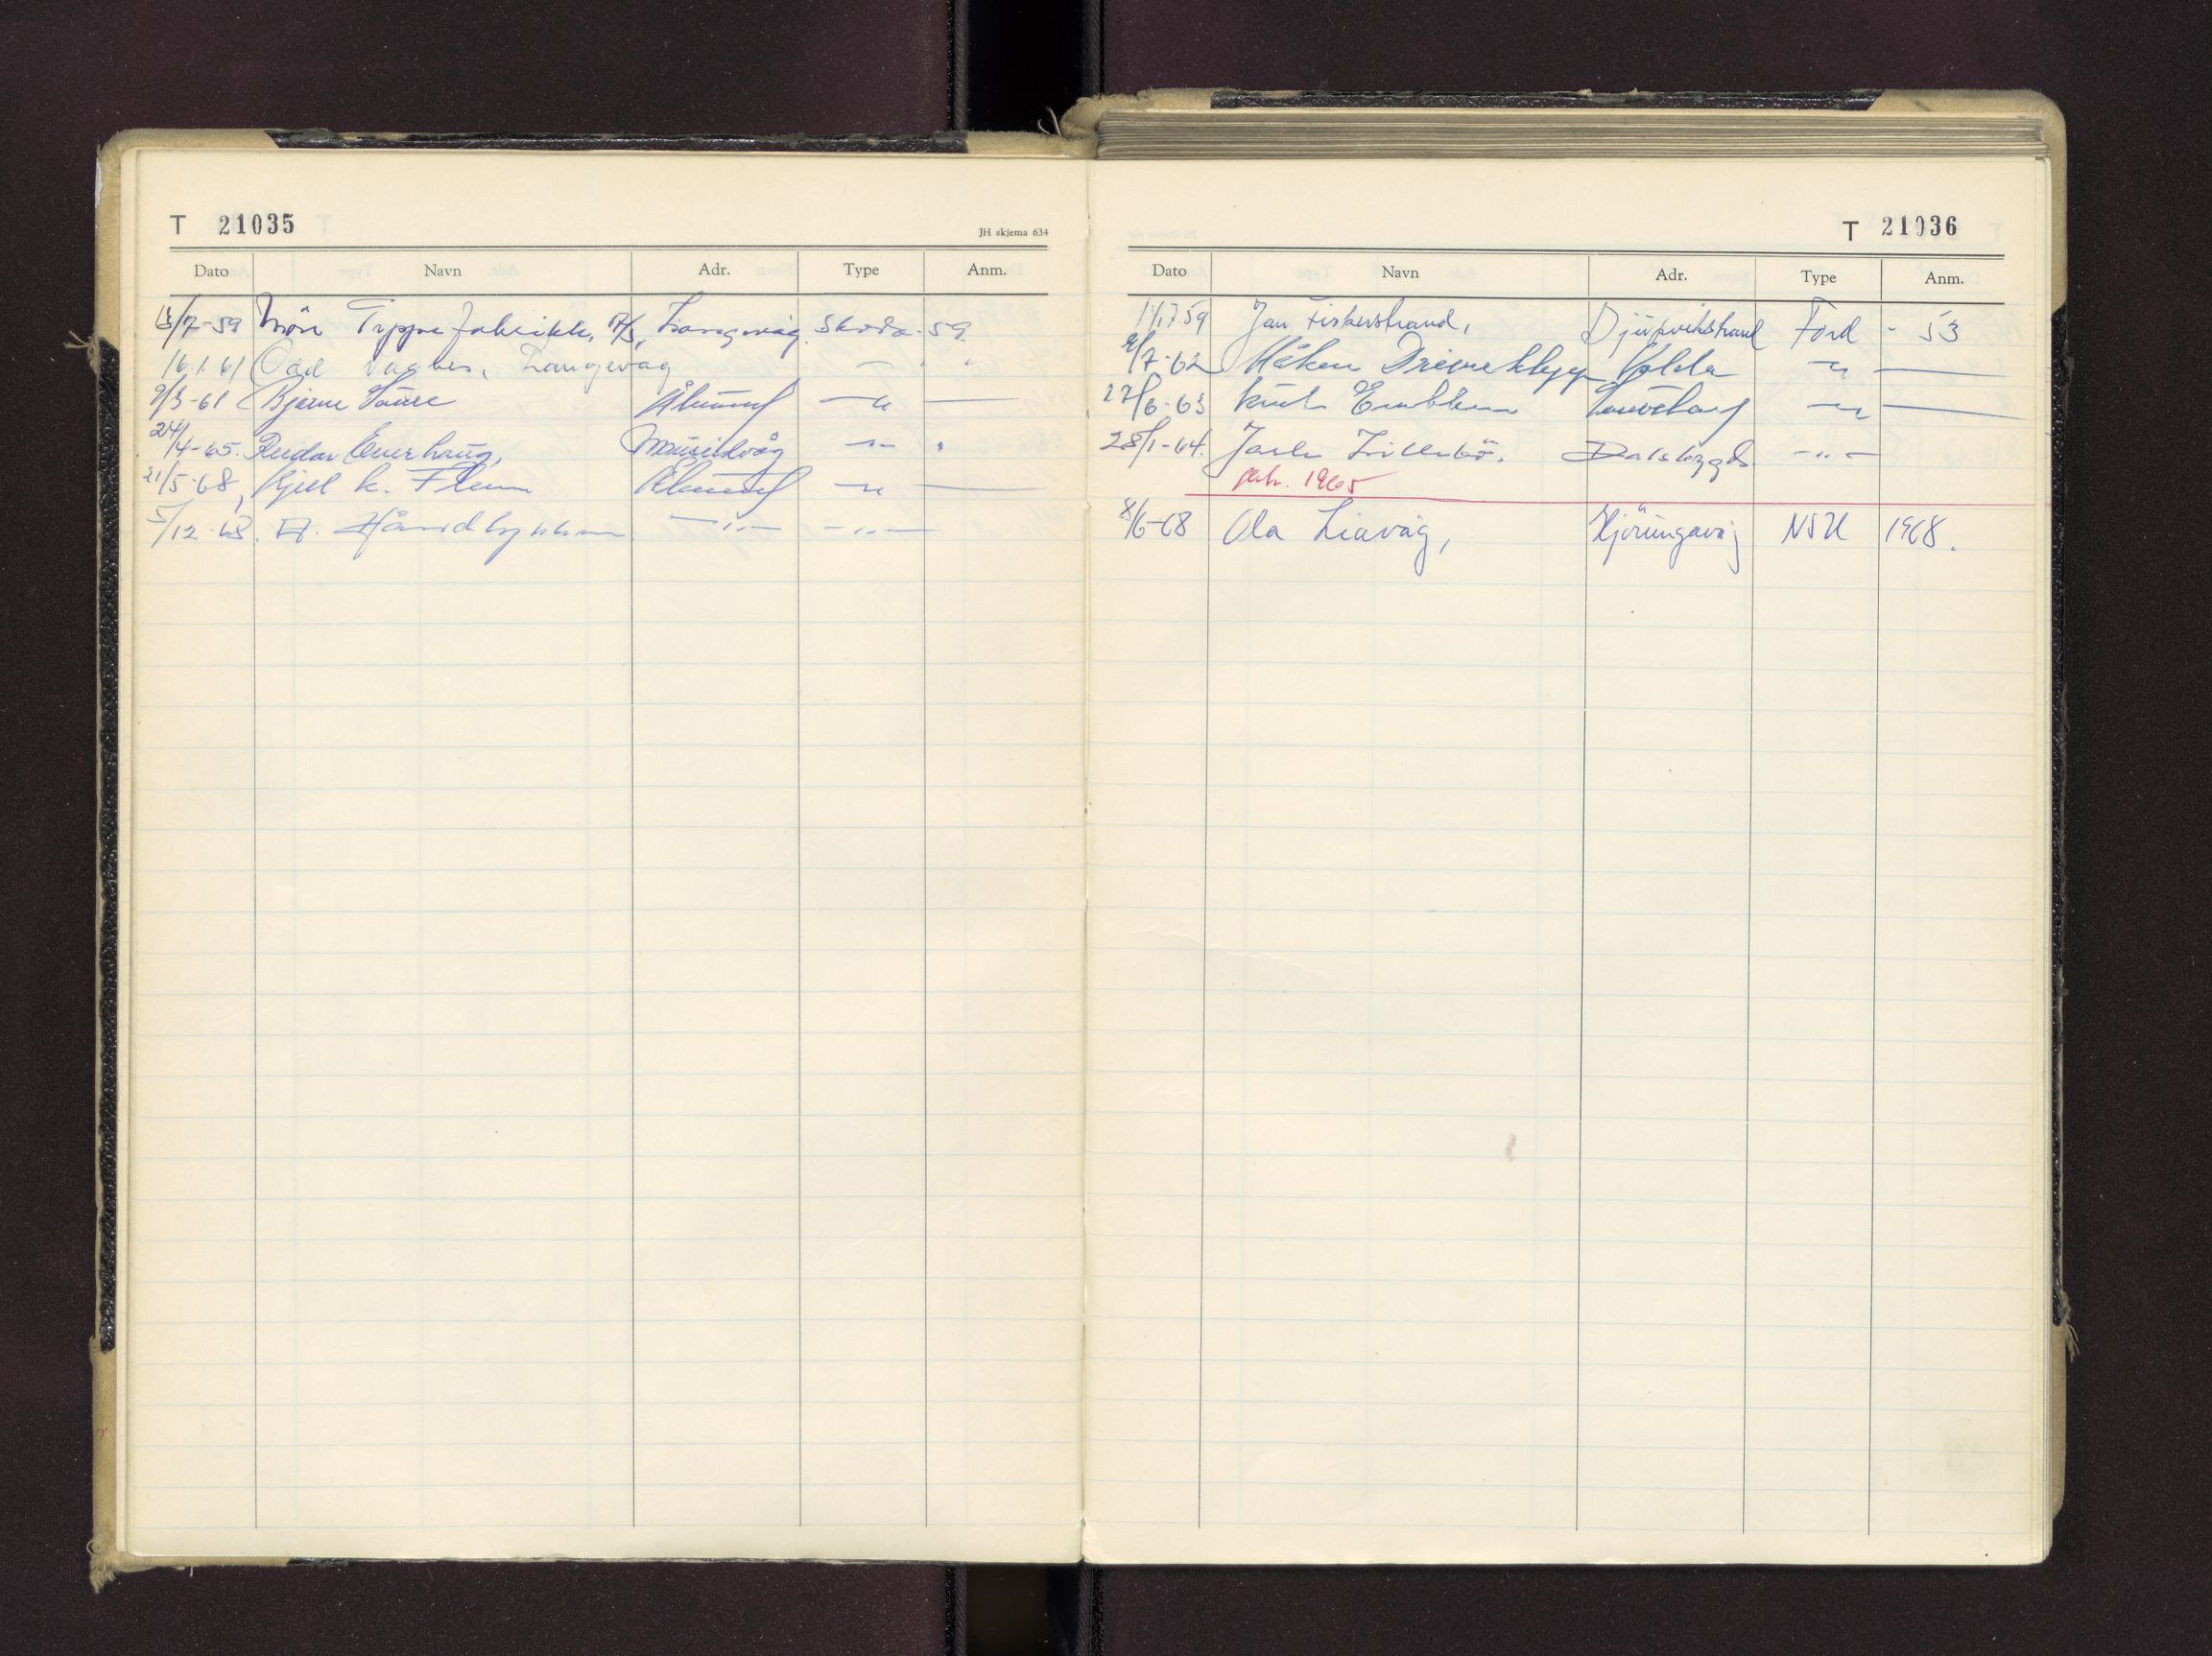 T 21035
JH skjema 634
Dato Navn Adr. Type Anm.
13/7-59 Möre Tryppefabrikk, A/S, Langevåg. Skoda - 59.
16.1.61 Odd Vagnes, Langevåg — " "
9/3-61 Bjarne Saure Ålesund — " —
24/4-65. Reidar Overhaug, — " — "
21/5-68, Kjell K. Flem Ålesund — " —
5/12-68. A. — " — — " —
T 21036
Dato Navn Adr. Type Anm.
11/7 59 Jan Fiskerstrand, Djupvikstrand Ford - 53
9/7-62 Håkon Driveklepp Volda — " —
27/6-63 Knut Emblem — " —
28/1-64. Jarle Lillebö. Dalsbygda — " —
1965
8/6-68 Ola Liavåg, Hjörungavåg NSU 1968.